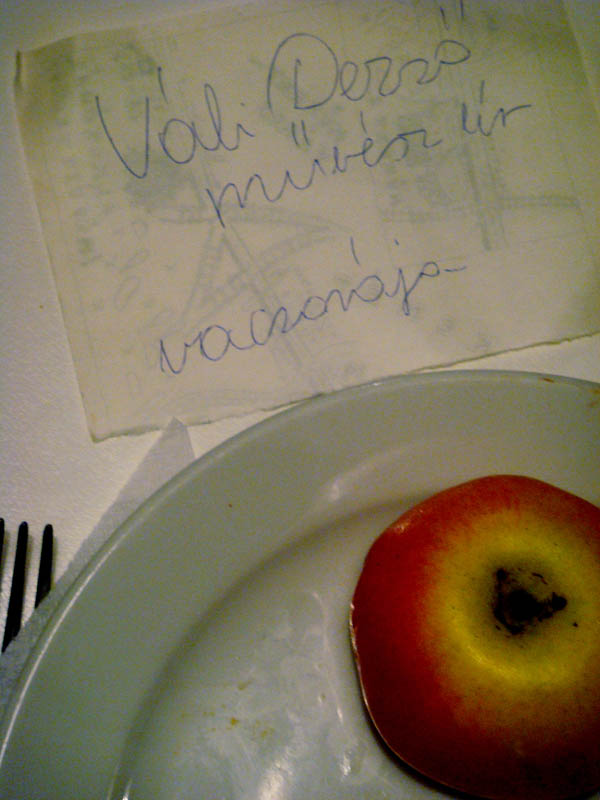 Váli Dezső
művész úr
vacsorája